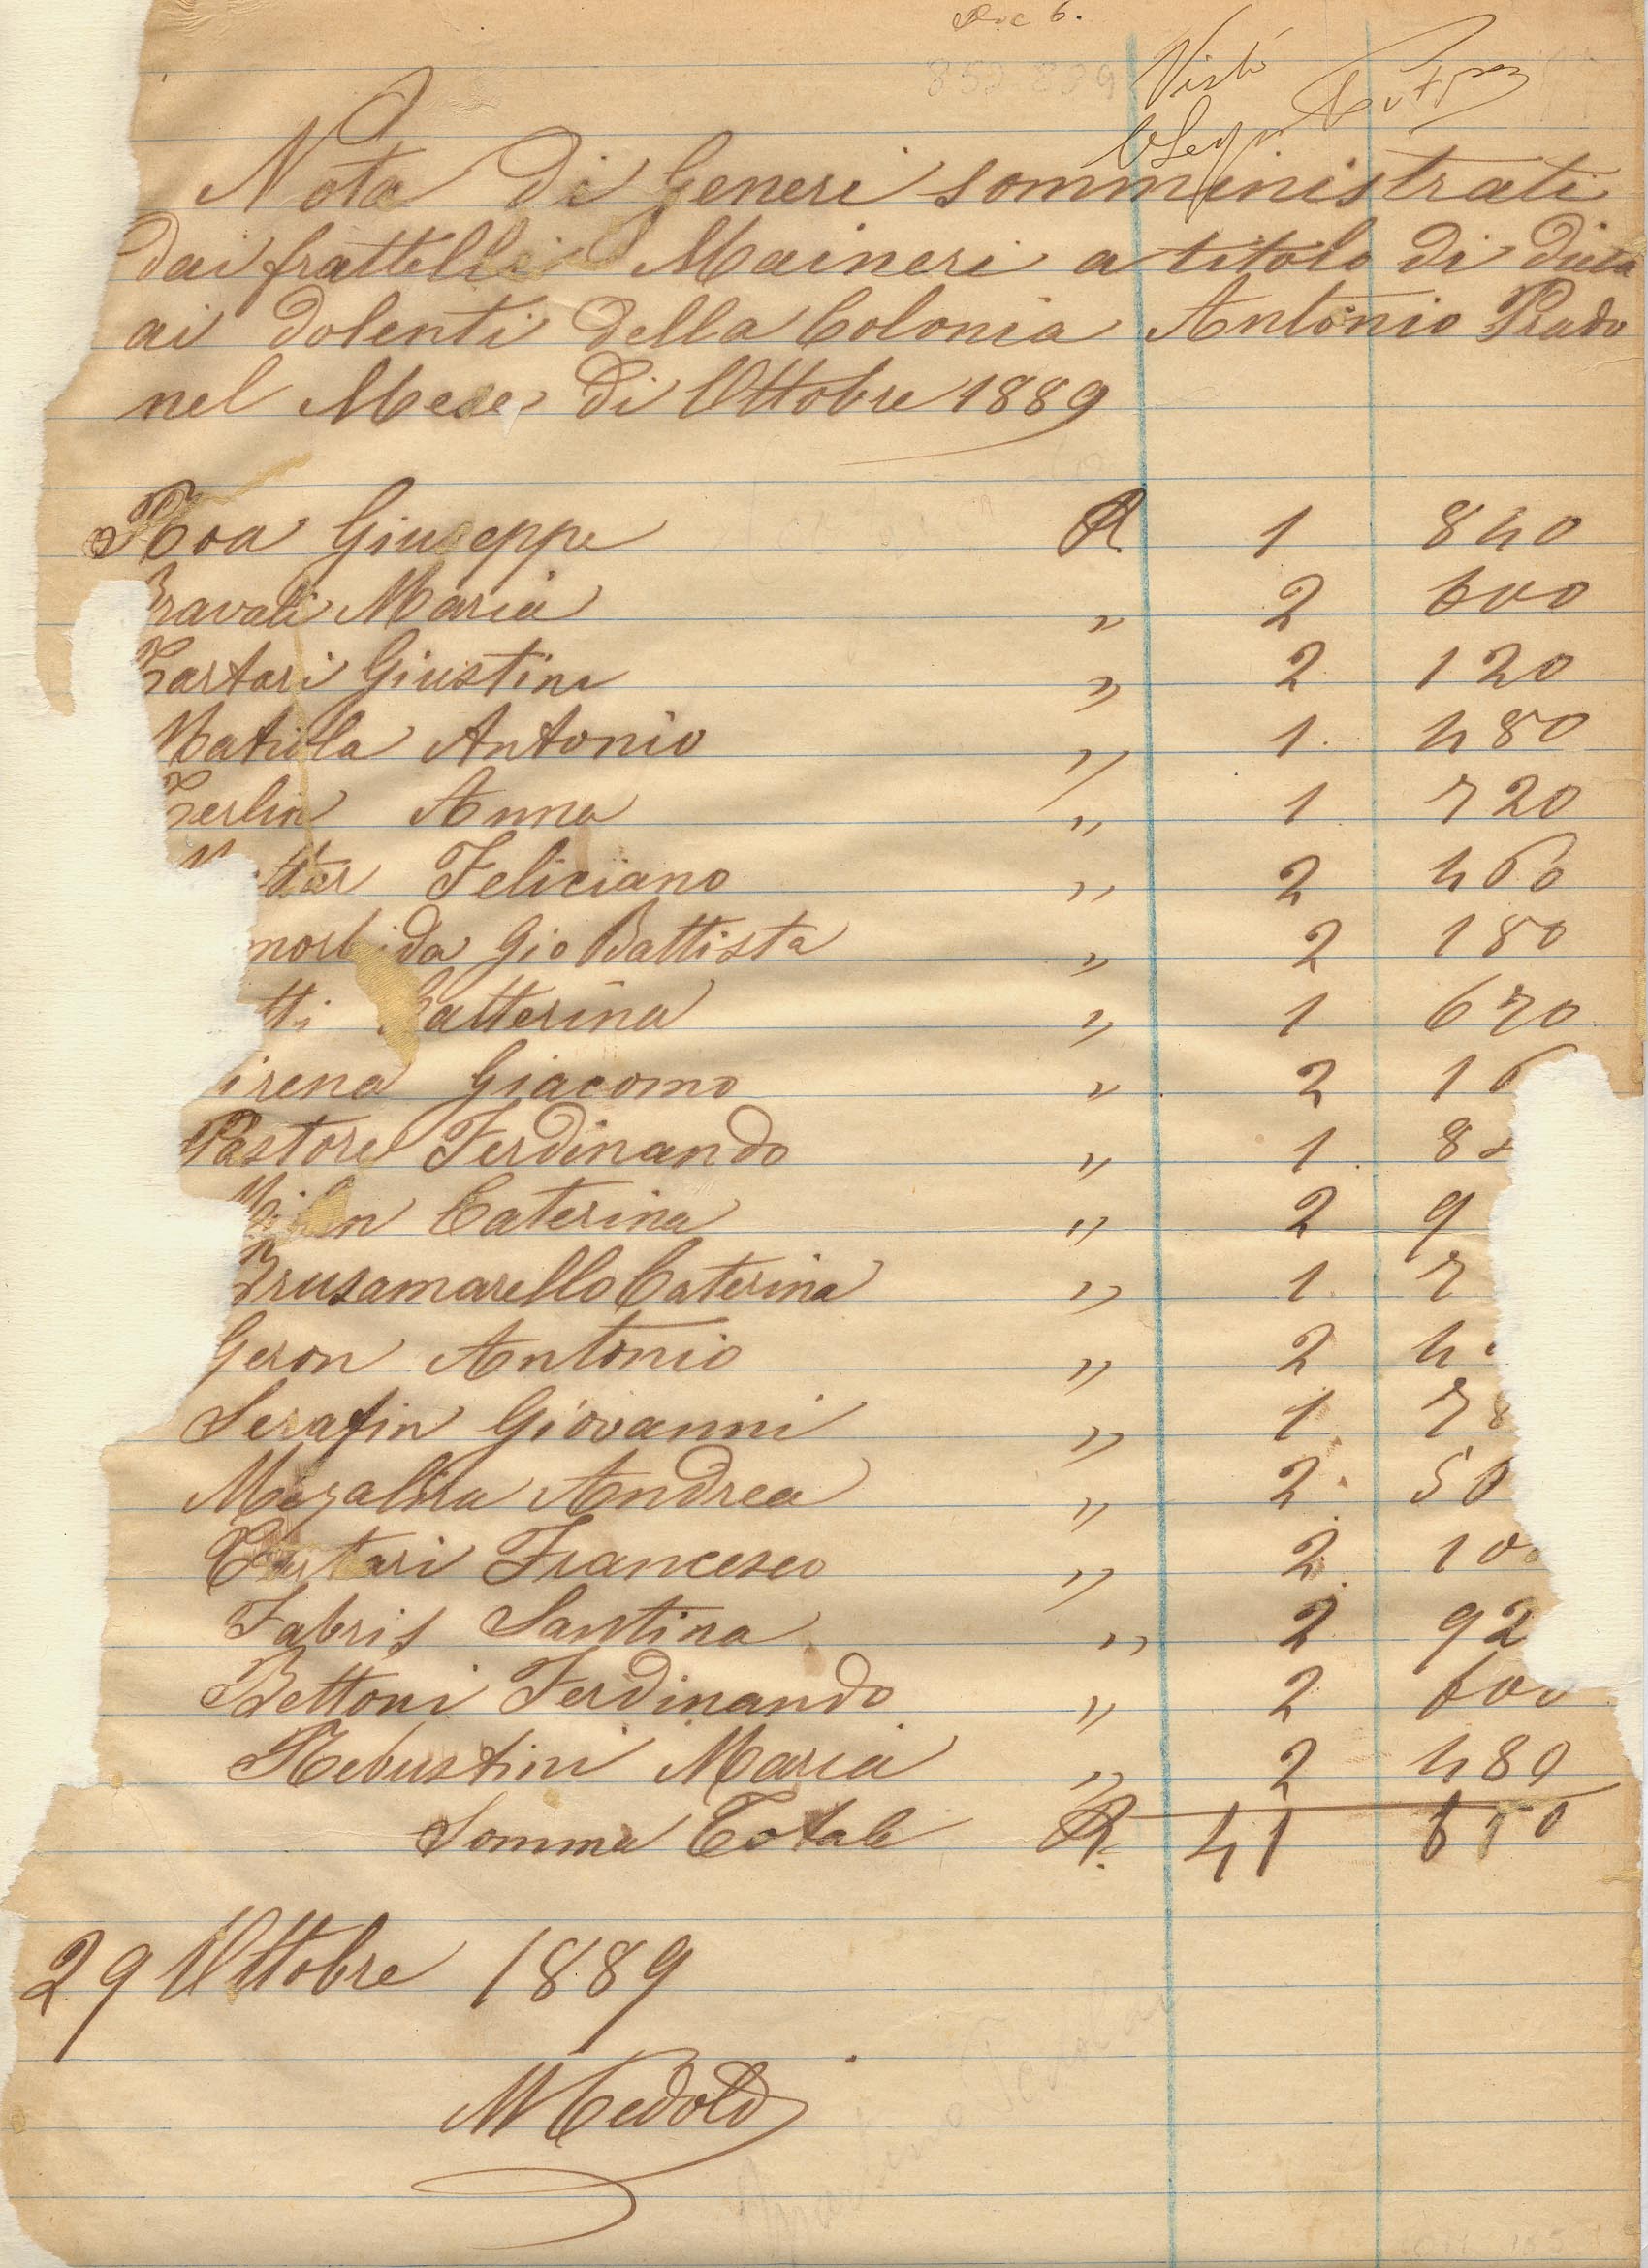 Doc 6.
Visto
Nota di Generi somministrati
dai frattelli Maineri a titolo di dieta
ai dolenti della Colonia Antonio Prado
nel Mese di Ottobre 1889
Roa Giuseppe R. 1 840
Bravati Maria " 2 600
Zartari Giustina " 2 120
Matiola Antonio " 1 480
Zerlin Anna " 1 720
Feliciano " 2 460
morbida Gio Battista " 2 180
tti Catterina " 1 670
irena Giacomo " 2 16
Pastore Ferdinando " 1 8
Caterina " 2 9
Brusamarello Caterina " 1 7
Geron Antonio " 2 4
Serafin Giovanni " 1 78
Andrea " 2 50
Francesco " 2 10
Fabris Santina " 2 92
Bettoni Ferdinando " 2 600
Rebustini Maria " 2 480
Somma Totale R. 41 650
29 Ottobre 1889